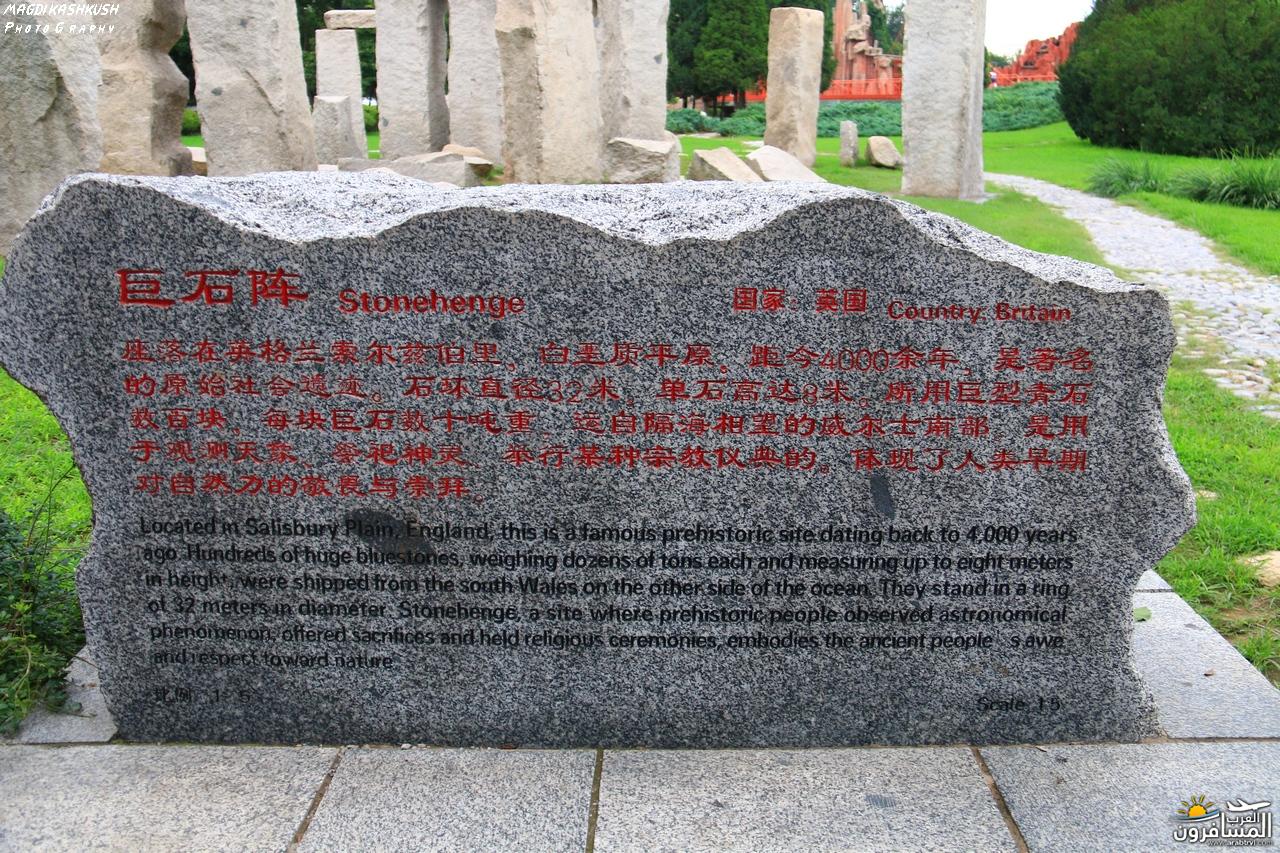 MAGDI KASHKUSH
PHOTOGRAPHY
巨石阵 Stonehenge 国家：英国 Country: Britain
座落在英格兰索尔兹伯里，白垩质平原。距今4000余年，是著名
的原始社会遗迹。石环直径32米，单石高达8米。所用巨型青石
数百块，每块巨石数十吨重，运自隔海相望的威尔士南部，是用
于观测天象、祭祀神灵、举行某种宗教仪典的。体现了人类早期
对自然力的敬畏与崇拜。
Located in Salisbury Plain, England, this is a famous prehistoric site dating back to 4,000 years
ago. Hundreds of huge bluestones, weighing dozens of tons each and measuring up to eight meters
in height, were shipped from the south Wales on the other side of the ocean. They stand in a ring
of 32 meters in diameter. Stonehenge, a site where prehistoric people observed astronomical
phenomenon, offered sacrifices and held religious ceremonies, embodies the ancient people's awe
and respect toward nature
比例 1:5 Scale 1:5
العرب
المسافرون
www.arabtrvl.com